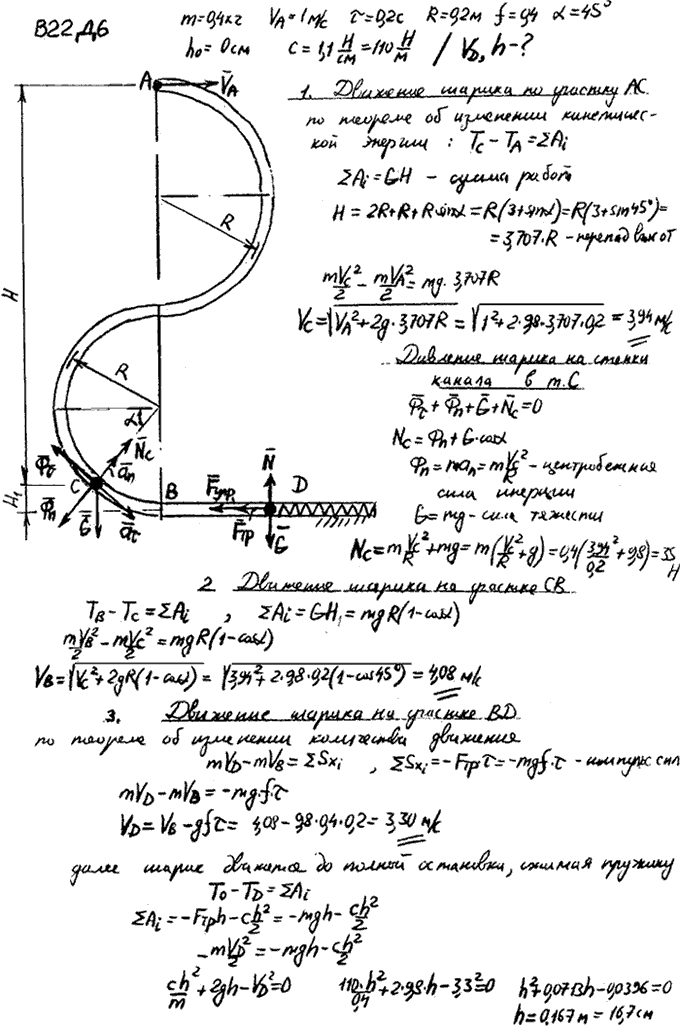 В22 Д6
m=0,4кг V̄A=1 м/с τ=0,2с R=0,2м f=0,4 α=45°
h₀=0см c=1,1 Н/см=110 Н/м / VD, h-?
A V̄A
R
H
R
α
N̄c
Φ̄τ
ān
C
Φ̄n
Ḡ
āτ
H₁
B
F̄упр
F̄тр
N̄
D
Ḡ
1. Движение шарика по участку АС.
по теореме об изменении кинетичес-
кой энергии : Tc - TA = ΣAi
ΣAi = GH - сумма работ
H = 2R+R+Rsinα = R(3+sinα)=R(3+sin45°)=
= 3,707·R - перепад высот
mVc²/2 - mVA²/2 = mg·3,707R
Vc = √(VA²+2g·3,707R) = √(1²+2·9,8·3,707·0,2) = 3,94 м/с
Давление шарика на стенки
канала в т.С
Φ̄τ + Φ̄n + Ḡ + N̄c = 0
Nc = Φn + G·cosα
Φn = man = m Vc²/R - центробежная
сила инерции
G = mg - сила тяжести
Nc = m Vc²/R + mg = m(Vc²/R + g) = 0,4(3,94²/0,2 + 9,8) = 35 Н
2 Движение шарика на участке СВ
TB - Tc = ΣAi , ΣAi = GH₁ = mgR(1-cosα)
mVB²/2 - mVc²/2 = mgR(1-cosα)
VB = √(Vc²+2gR(1-cosα)) = √(3,94²+2·9,8·0,2(1-cos45°)) = 4,08 м/с
3. Движение шарика на участке BD
по теореме об изменении количества движения
mVD - mVB = ΣSxi , ΣSxi = -Fтр·τ = -mgf·τ - импульс сил
mVD - mVB = -mg·f·τ
VD = VB - gfτ = 4,08 - 9,8·0,4·0,2 = 3,30 м/с
далее шарик движется до полной остановки, сжимая пружину
T₀ - TD = ΣAi
ΣAi = -Fтрh - ch²/2 = -mgh - ch²/2
-mVD²/2 = -mgh - ch²/2
ch²/m + 2gh - VD² = 0 110·h²/0,4 + 2·9,8·h - 3,3² = 0 h² + 0,0713h - 0,0396 = 0
h = 0,167 м = 16,7 см